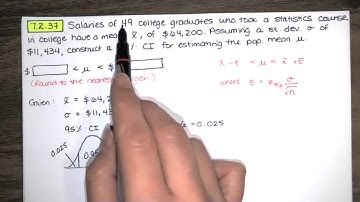 7.2.37 Salaries of 49 college graduates who took a statistics course
in college have a mean, x̄, of $64,200. Assuming a st. dev. σ of
$11,434, construct a % CI for estimating the pop. mean μ.
$ < μ < $
x̄ - E < μ < x̄ + E
(Round to the nearest
where E = Zα/2 σ/√n
Given: x̄ = $64,
σ = $11,43
95% CI = 0.025
0.025 0.95